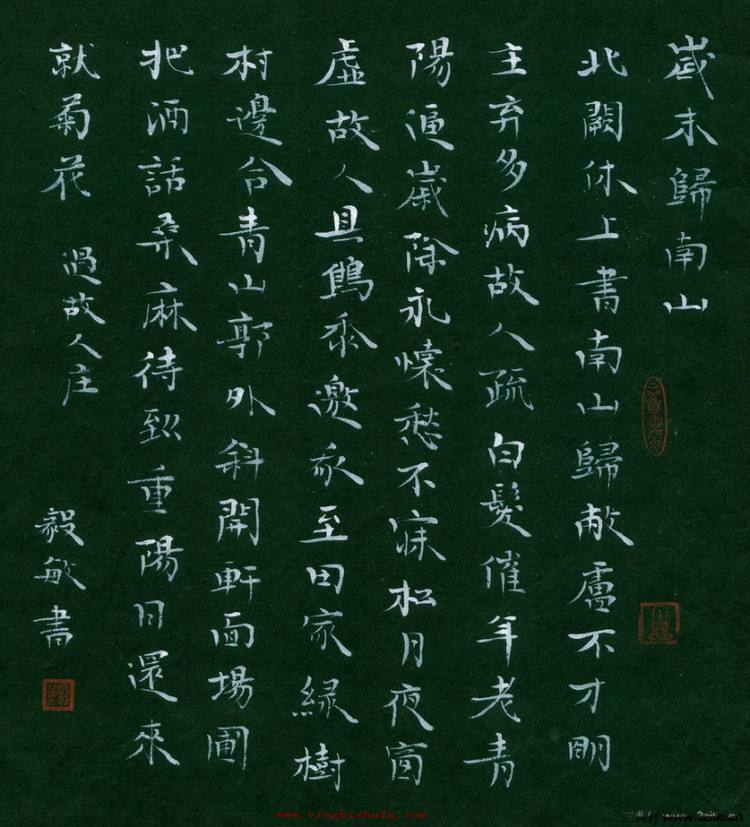 歲末歸南山
北闕休上書南山歸敝盧不才明
主弃多病故人疏白髮催年老青
陽逼歲除永懷愁不寐松月夜窗
虛故人具鷄黍邀我至田家綠樹
村邊合青山郭外斜開軒面場圃
把酒話桑麻待到重陽日還來
就菊花 過故人庄
毅敏書
www.yingbishufa.com